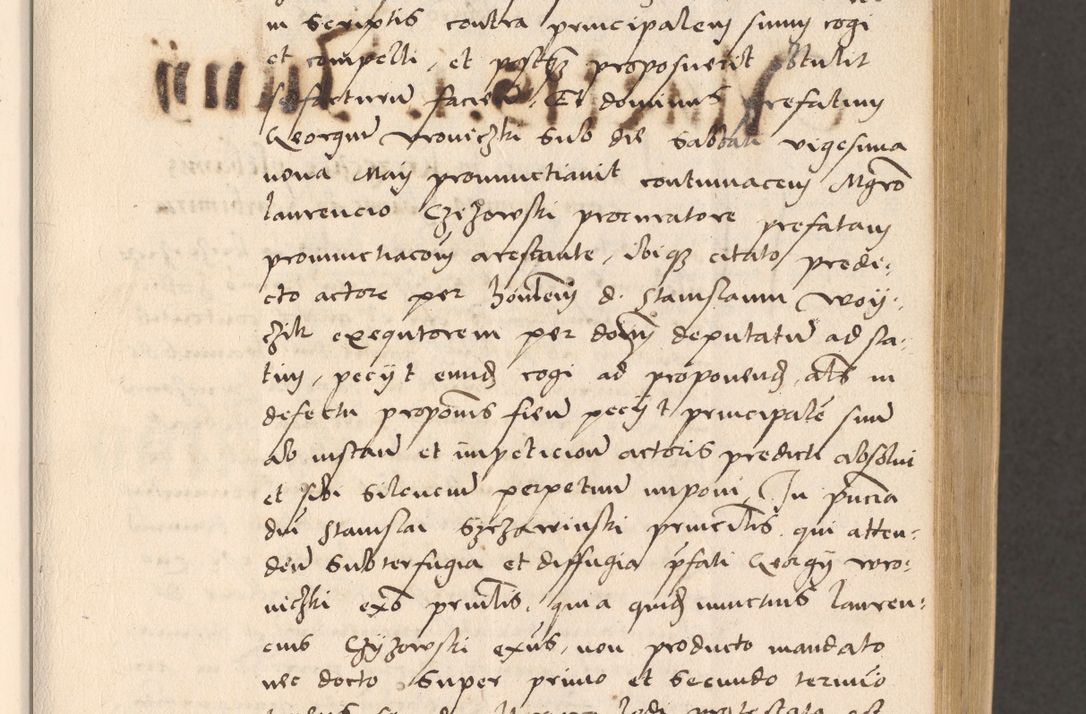 in scriptis contra principalem suum cogi
et compelli, et postqz proposuerit obtulit
se facturum facien. Et dominus prefatum
Georgium Wroniczki sub die Sabbati vigesima
nona Maij pronunctiavit contumacem Mgro
Laurencio Czyzowski procuratore prefatam
pronunctiacom arestante, ibiqz citato predi-
cto actore per honlem d. Stanislaum Woy-
zik exequtorem per domm deputatum ad sta-
tim, pecijt eundz cogi ad proponendz, als in
defectu proponis fiem pecijt principalem suum
ab instan et impeticion actoris predicti absolvi
et sibi silencium perpetuum imponi, In pncia
dni Stanislai principlis, qui atten-
den subterfugia et diffugia pfati Georgij Wro-
niczki exo prinlis, qui a quidz nunctius Lauren-
cius Czyzowski exus, non producto mandato
nec docto super primo et secundo termio